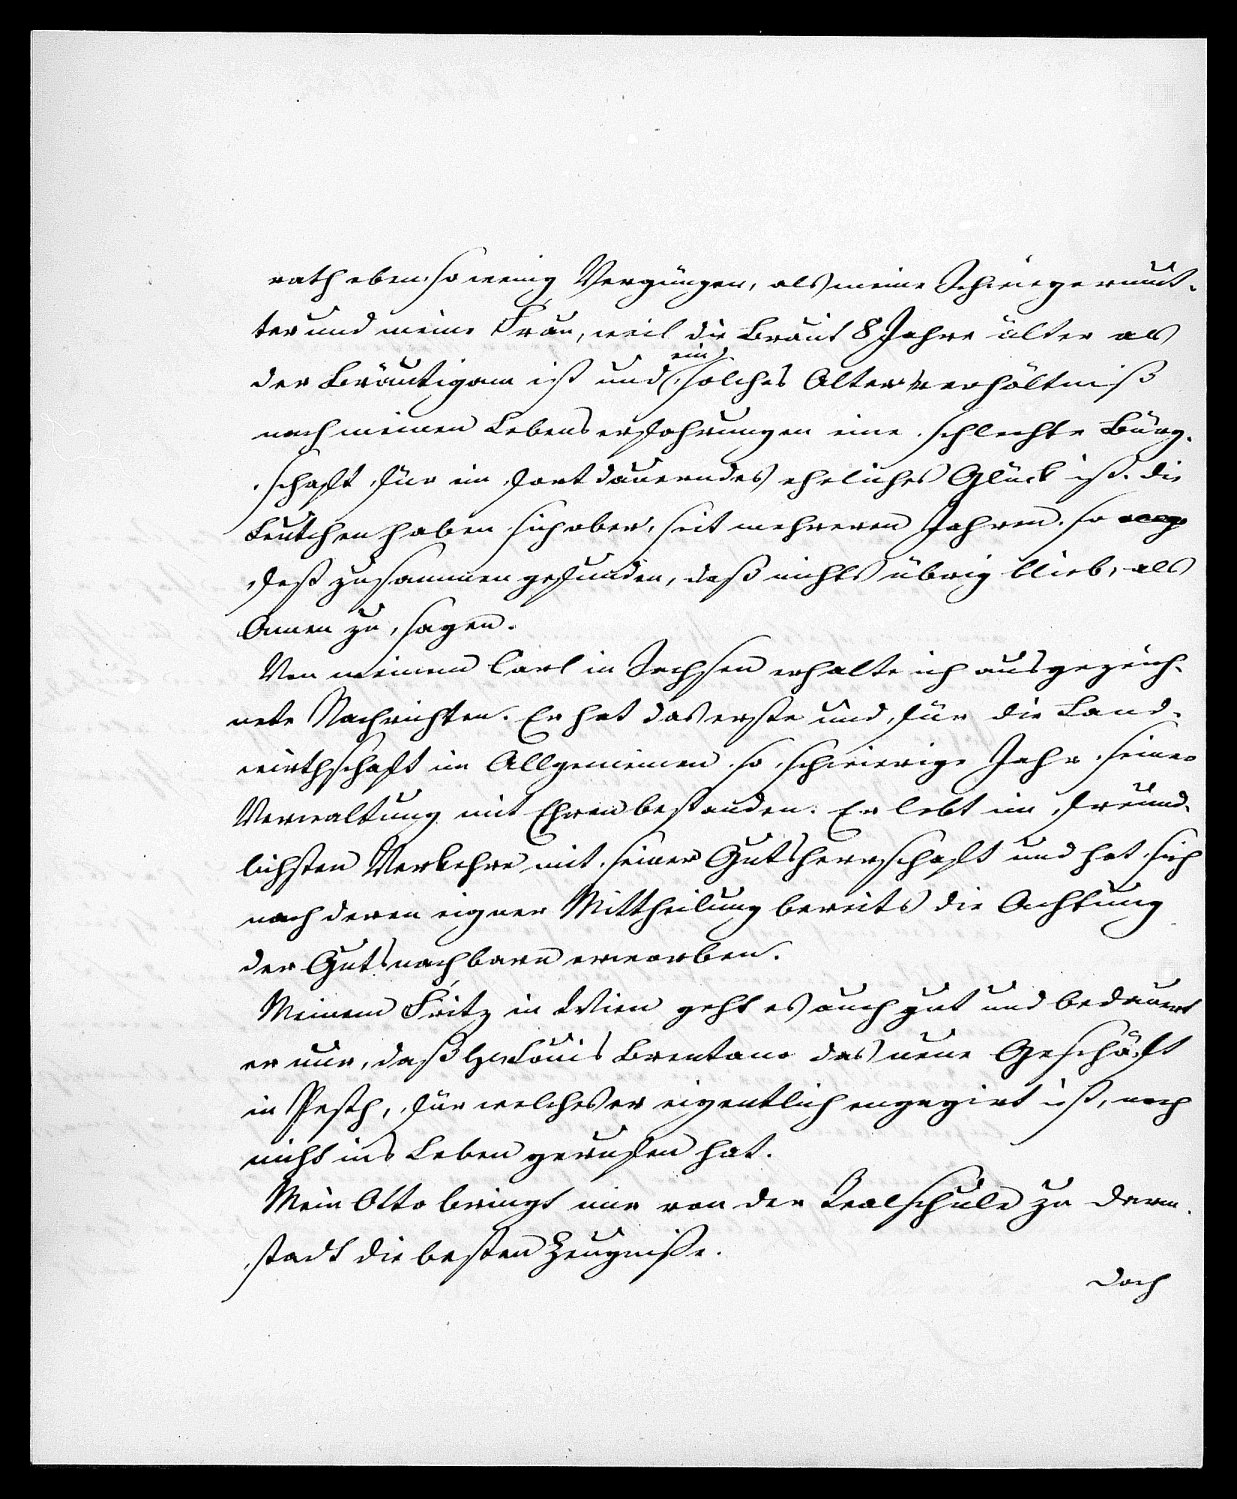 rath eben so wenig Vergnügen, als meine Schwiegermut-
ter und meine Frau, weil die Braut 8 Jahre älter als
der Bräutigam ist und ein solches Altersverhältniß
nach meinen Lebenserfahrungen eine schlechte Bürg-
schaft für ein fortdauerndes eheliches Glück ist. Die
Leutchen haben sich aber seit mehreren Jahren so
fest zusammengefunden, daß nichts übrig blieb, als
Amen zu sagen.
Von meinem Carl in Sachsen erhalte ich ausgezeich-
nete Nachrichten. Er hat das erste und für die Land-
wirthschaft im Allgemeinen so schwierige Jahr seiner
Verwaltung mit Ehren bestanden. Er lebt im freund-
lichsten Verkehre mit seiner Gutsherrschaft und hat sich
nach deren eigner Mittheilung bereits die Achtung
der Gutsnachbarn erworben.
Meinem Fritz in Wien geht es auch gut und bedauert
er nur, daß Hr Louis Brentano das neue Geschäft
in Pesth, für welches er eigentlich engagirt ist, noch
nicht ins Leben gerufen hat.
Mein Otto bringt mir von der Realschule zu Darm-
stadt die besten Zeugniße.
Doch